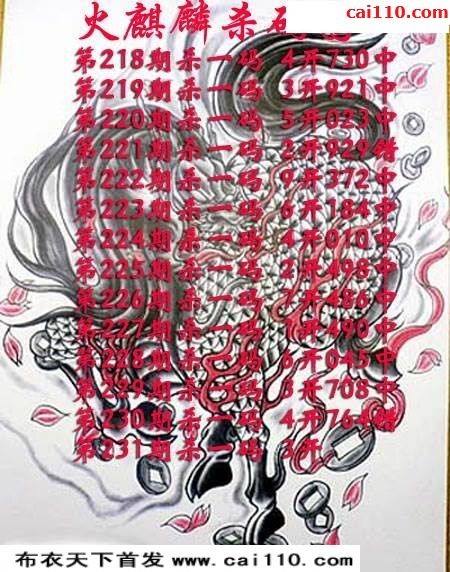 cai110.com
火麒麟杀码
第218期杀一码 4开730中
第219期杀一码 3开921中
第220期杀一码 5开023中
第221期杀一码 2开929错
第222期杀一码 9开372中
第223期杀一码 6开184中
第224期杀一码 4开010中
第225期杀一码 2开498中
第226期杀一码 7开486中
第227期杀一码 1开490中
第228期杀一码 6开045中
第229期杀一码 3开708中
第230期杀一码 4开764错
第231期杀一码 3开
布衣天下首发 www.cai110.com